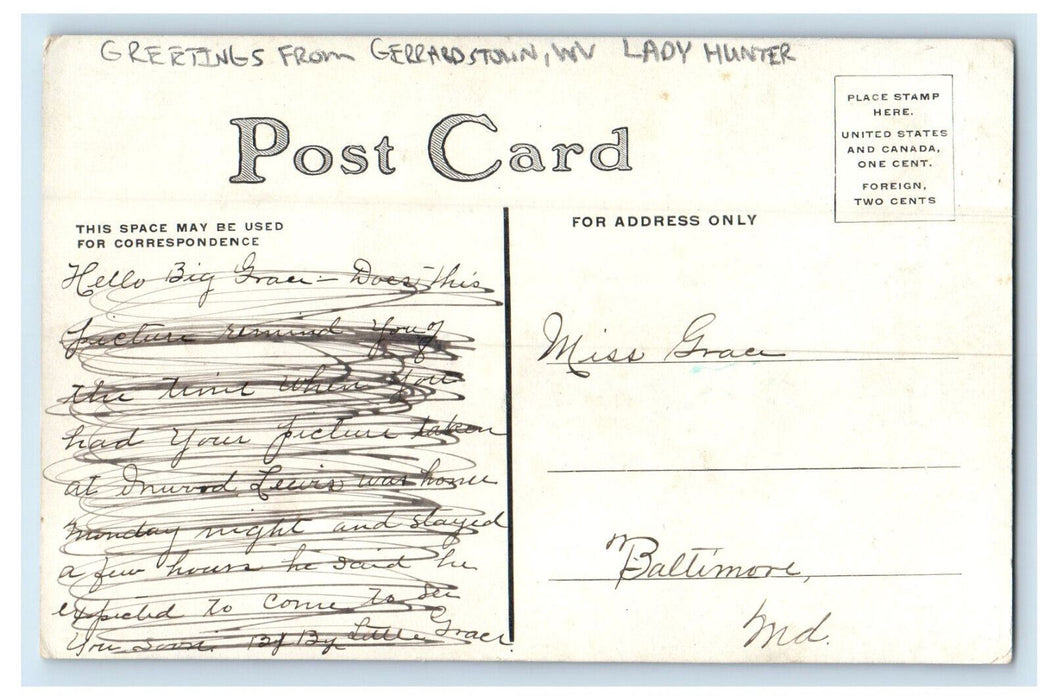 GREETINGS FROM GERRARDSTOWN, WV LADY HUNTER
Post Card
PLACE STAMP
HERE.
UNITED STATES
AND CANADA,
ONE CENT.
FOREIGN,
TWO CENTS
THIS SPACE MAY BE USED
FOR CORRESPONDENCE
FOR ADDRESS ONLY
Hello Big Grace – Does this
picture remind you of
the time when you
had your picture taken
at Inwood Lewis was home
monday night and stayed
a few hours he said he
expected to come to see
you soon. By By Little Grace
Miss Grace
Baltimore,
Md.